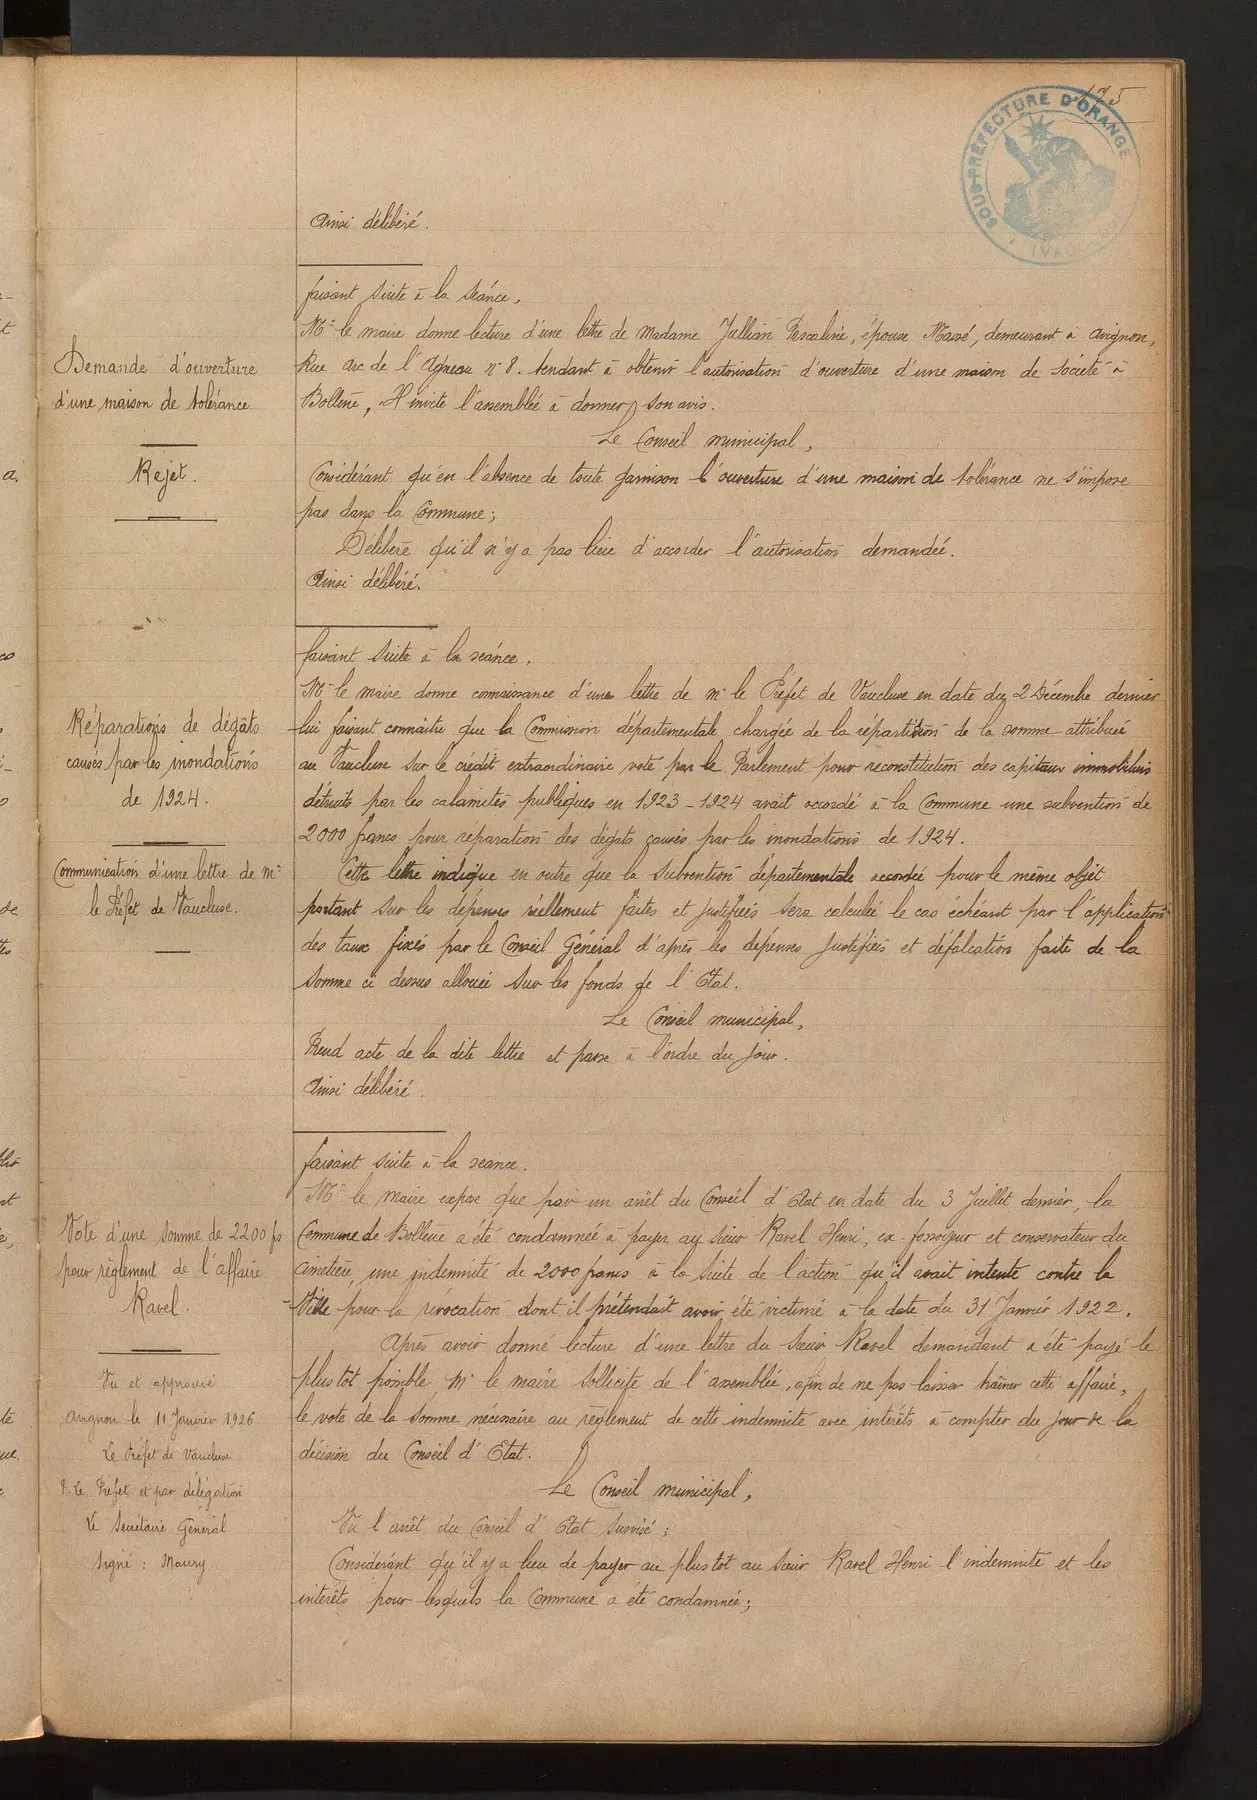 175
SOUS-PRÉFECTURE D'ORANGE
Ainsi délibéré.
faisant suite à la séance,
Demande d'ouverture
d'une maison de tolérance
Rejet.
Mr le maire donne lecture d'une lettre de Madame Jullian Pascaline, épouse Massé, demeurant à Avignon,
Rue Arc de l'Agneau n° 8. tendant à obtenir l'autorisation d'ouverture d'une maison de société à
Bollène, Il invite l'assemblée à donner son avis.
Le Conseil municipal,
Considérant qu'en l'absence de toute garnison l'ouverture d'une maison de tolérance ne s'impose
pas dans la Commune;
Délibère qu'il n'y a pas lieu d'accorder l'autorisation demandée.
Ainsi délibéré.
faisant suite à la séance,
Réparations de dégâts
causés par les inondations
de 1924.
Communication d'une lettre de Mr
le Préfet de Vaucluse.
Mr le maire donne connaissance d'une lettre de Mr le Préfet de Vaucluse en date du 2 Décembre dernier
lui faisant connaître que la Commission départementale chargée de la répartition de la somme attribuée
au Vaucluse sur le crédit extraordinaire voté par le Parlement pour reconstitution des capitaux immobiliers
détruits par les calamités publiques en 1923-1924 avait accordé à la Commune une subvention de
2000 francs pour réparation des dégâts causés par les inondations de 1924.
Cette lettre indique en outre que la subvention départementale accordée pour le même objet
portant sur les dépenses réellement faites et justifiées sera calculée le cas échéant par l'application
des taux fixés par le Conseil Général d'après les dépenses justifiées et défalcation faite de la
somme ci dessus allouée sur les fonds de l'Etat.
Le Conseil municipal,
Prend acte de la dite lettre et passe à l'ordre du jour.
Ainsi délibéré.
faisant suite à la séance.
Vote d'une somme de 2200 frs
pour règlement de l'affaire
Ravel.
Vu et approuvé
Avignon le 11 Janvier 1926
Le Préfet de Vaucluse
P. Le Préfet et par délégation
Le Secrétaire Général
Signé: Maury
Mr le maire expose que par un arrêt du Conseil d'Etat en date du 3 Juillet dernier, la
Commune de Bollène a été condamnée à payer au sieur Ravel Henri, ex-fossoyeur et conservateur du
cimetière, une indemnité de 2000 francs à la suite de l'action qu'il avait intenté contre la
Ville pour la révocation dont il prétendait avoir été victime à la date du 31 Janvier 1922.
Après avoir donné lecture d'une lettre du sieur Ravel demandant a été payé le
plus tôt possible, Mr le maire sollicite de l'assemblée, afin de ne pas laisser traîner cette affaire,
le vote de la somme nécessaire au règlement de cette indemnité avec intérêts à compter du jour de la
décision du Conseil d'Etat.
Le Conseil municipal,
Vu l'arrêt du Conseil d'Etat susvisé;
Considérant qu'il y a lieu de payer au plus tôt au sieur Ravel Henri l'indemnité et les
intérêts pour lesquels la Commune a été condamnée;